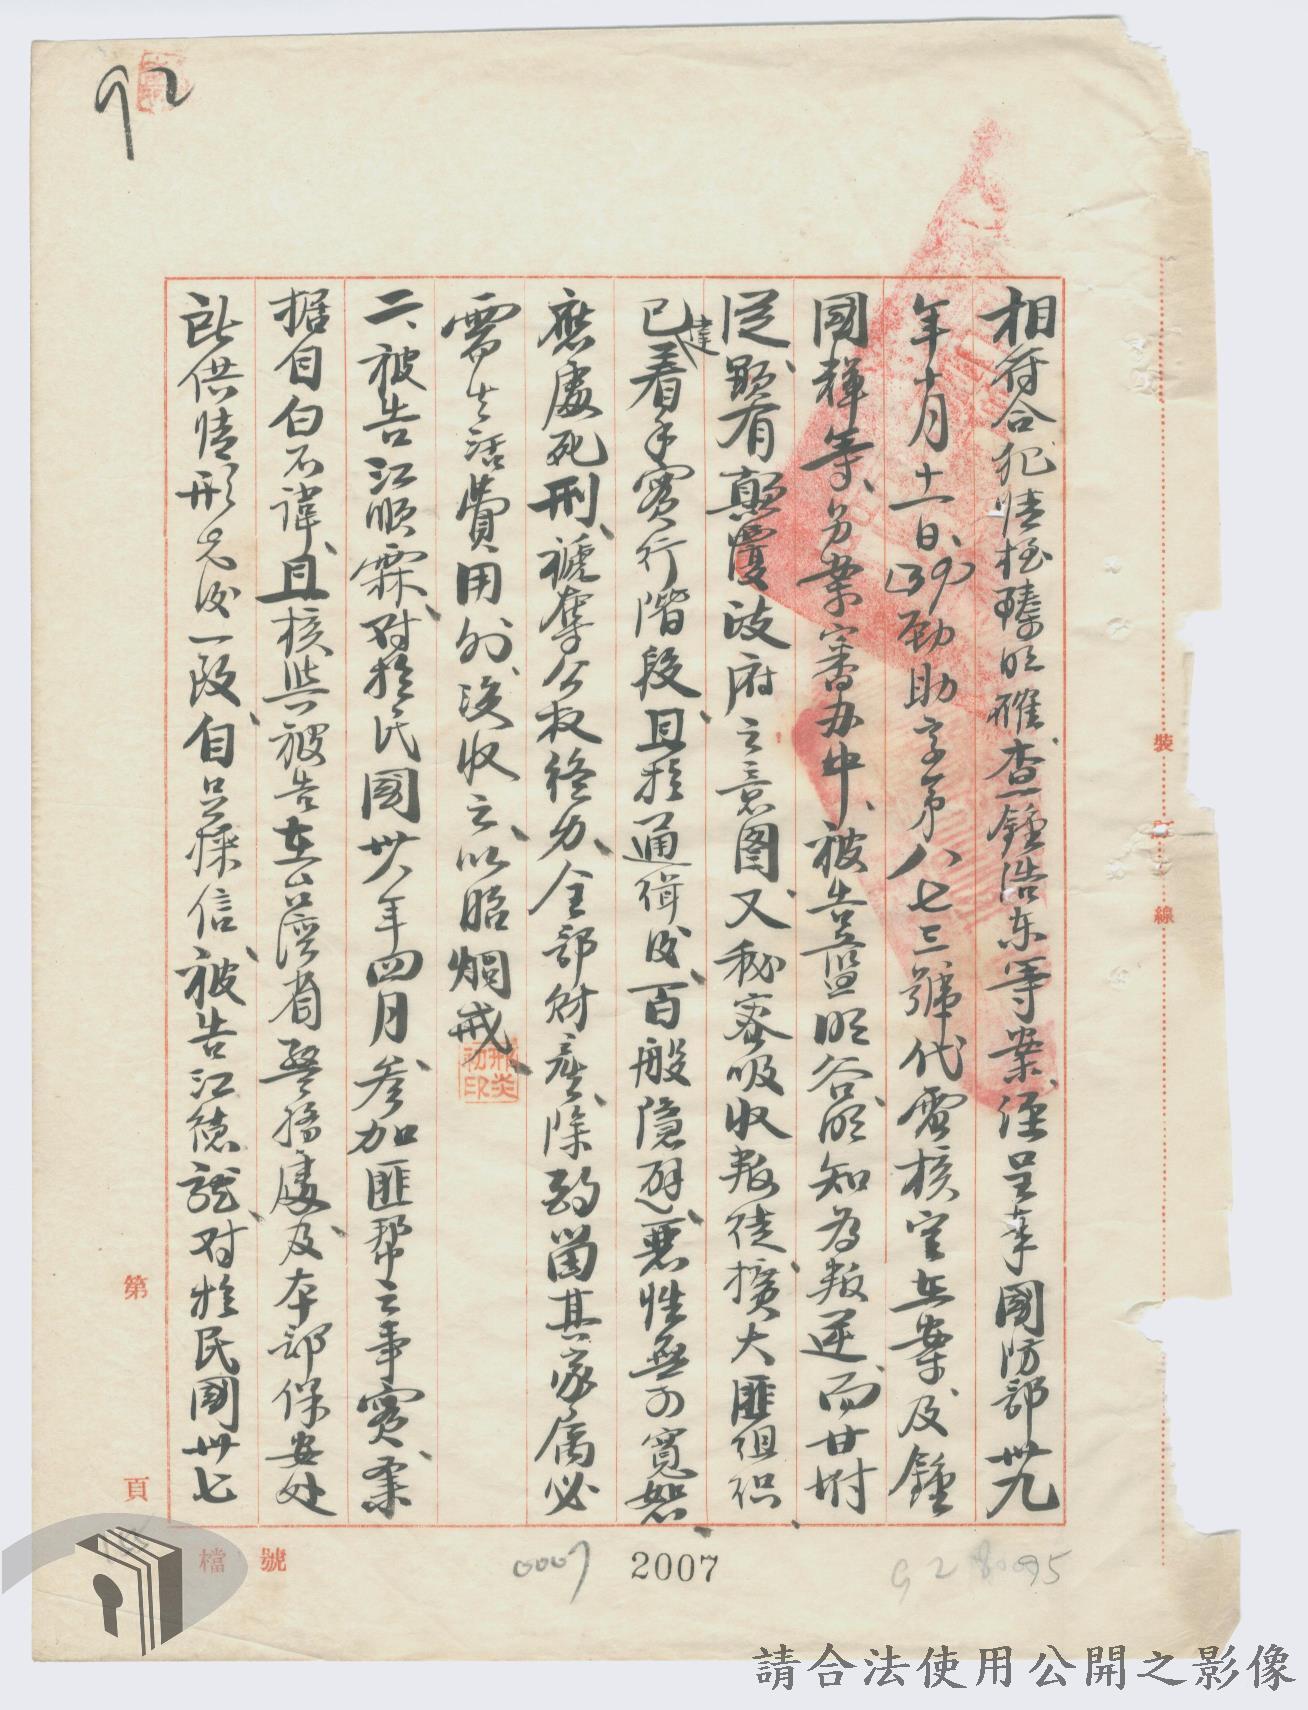 92
相符合犯情極臻明確、查鍾浩东等案、經呈奉國防部卅九
年十月十一日(39)勁助字第八七三號代電核定在案及鍾
國輝等、另案審办中、被告藍明谷、明知為叛逆、而甘坿
從、顯有顛覆政府之意图、又秘密吸收叛徒、擴大匪組织、
已着手实行階段、且於通缉後、百般隐避、悪性無可寬恕、
應處死刑、褫奪公权終身、全部財產、除酌留其家属必
需生活費用外、沒收之、以昭烱戒、
邢炎初印
二、被告江順霖、对於民國卅八年四月參加匪帮之事实、業
据自白不諱、且核與被告在台灣省警務處及本部保安处
所供情形先後一致、自足採信、被告江德龍、对於民國卅七
裝
訂
線
第
頁
檔號
0007
2007
92
請合法使用公開之影像